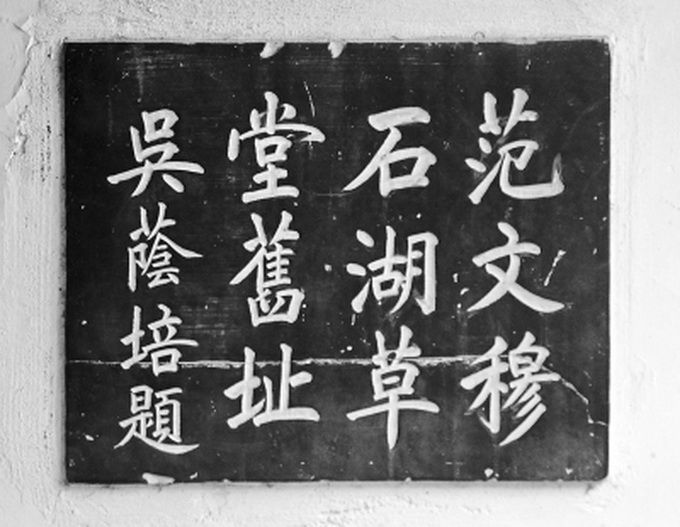 范文穆
石湖草
堂舊址
吳蔭培題